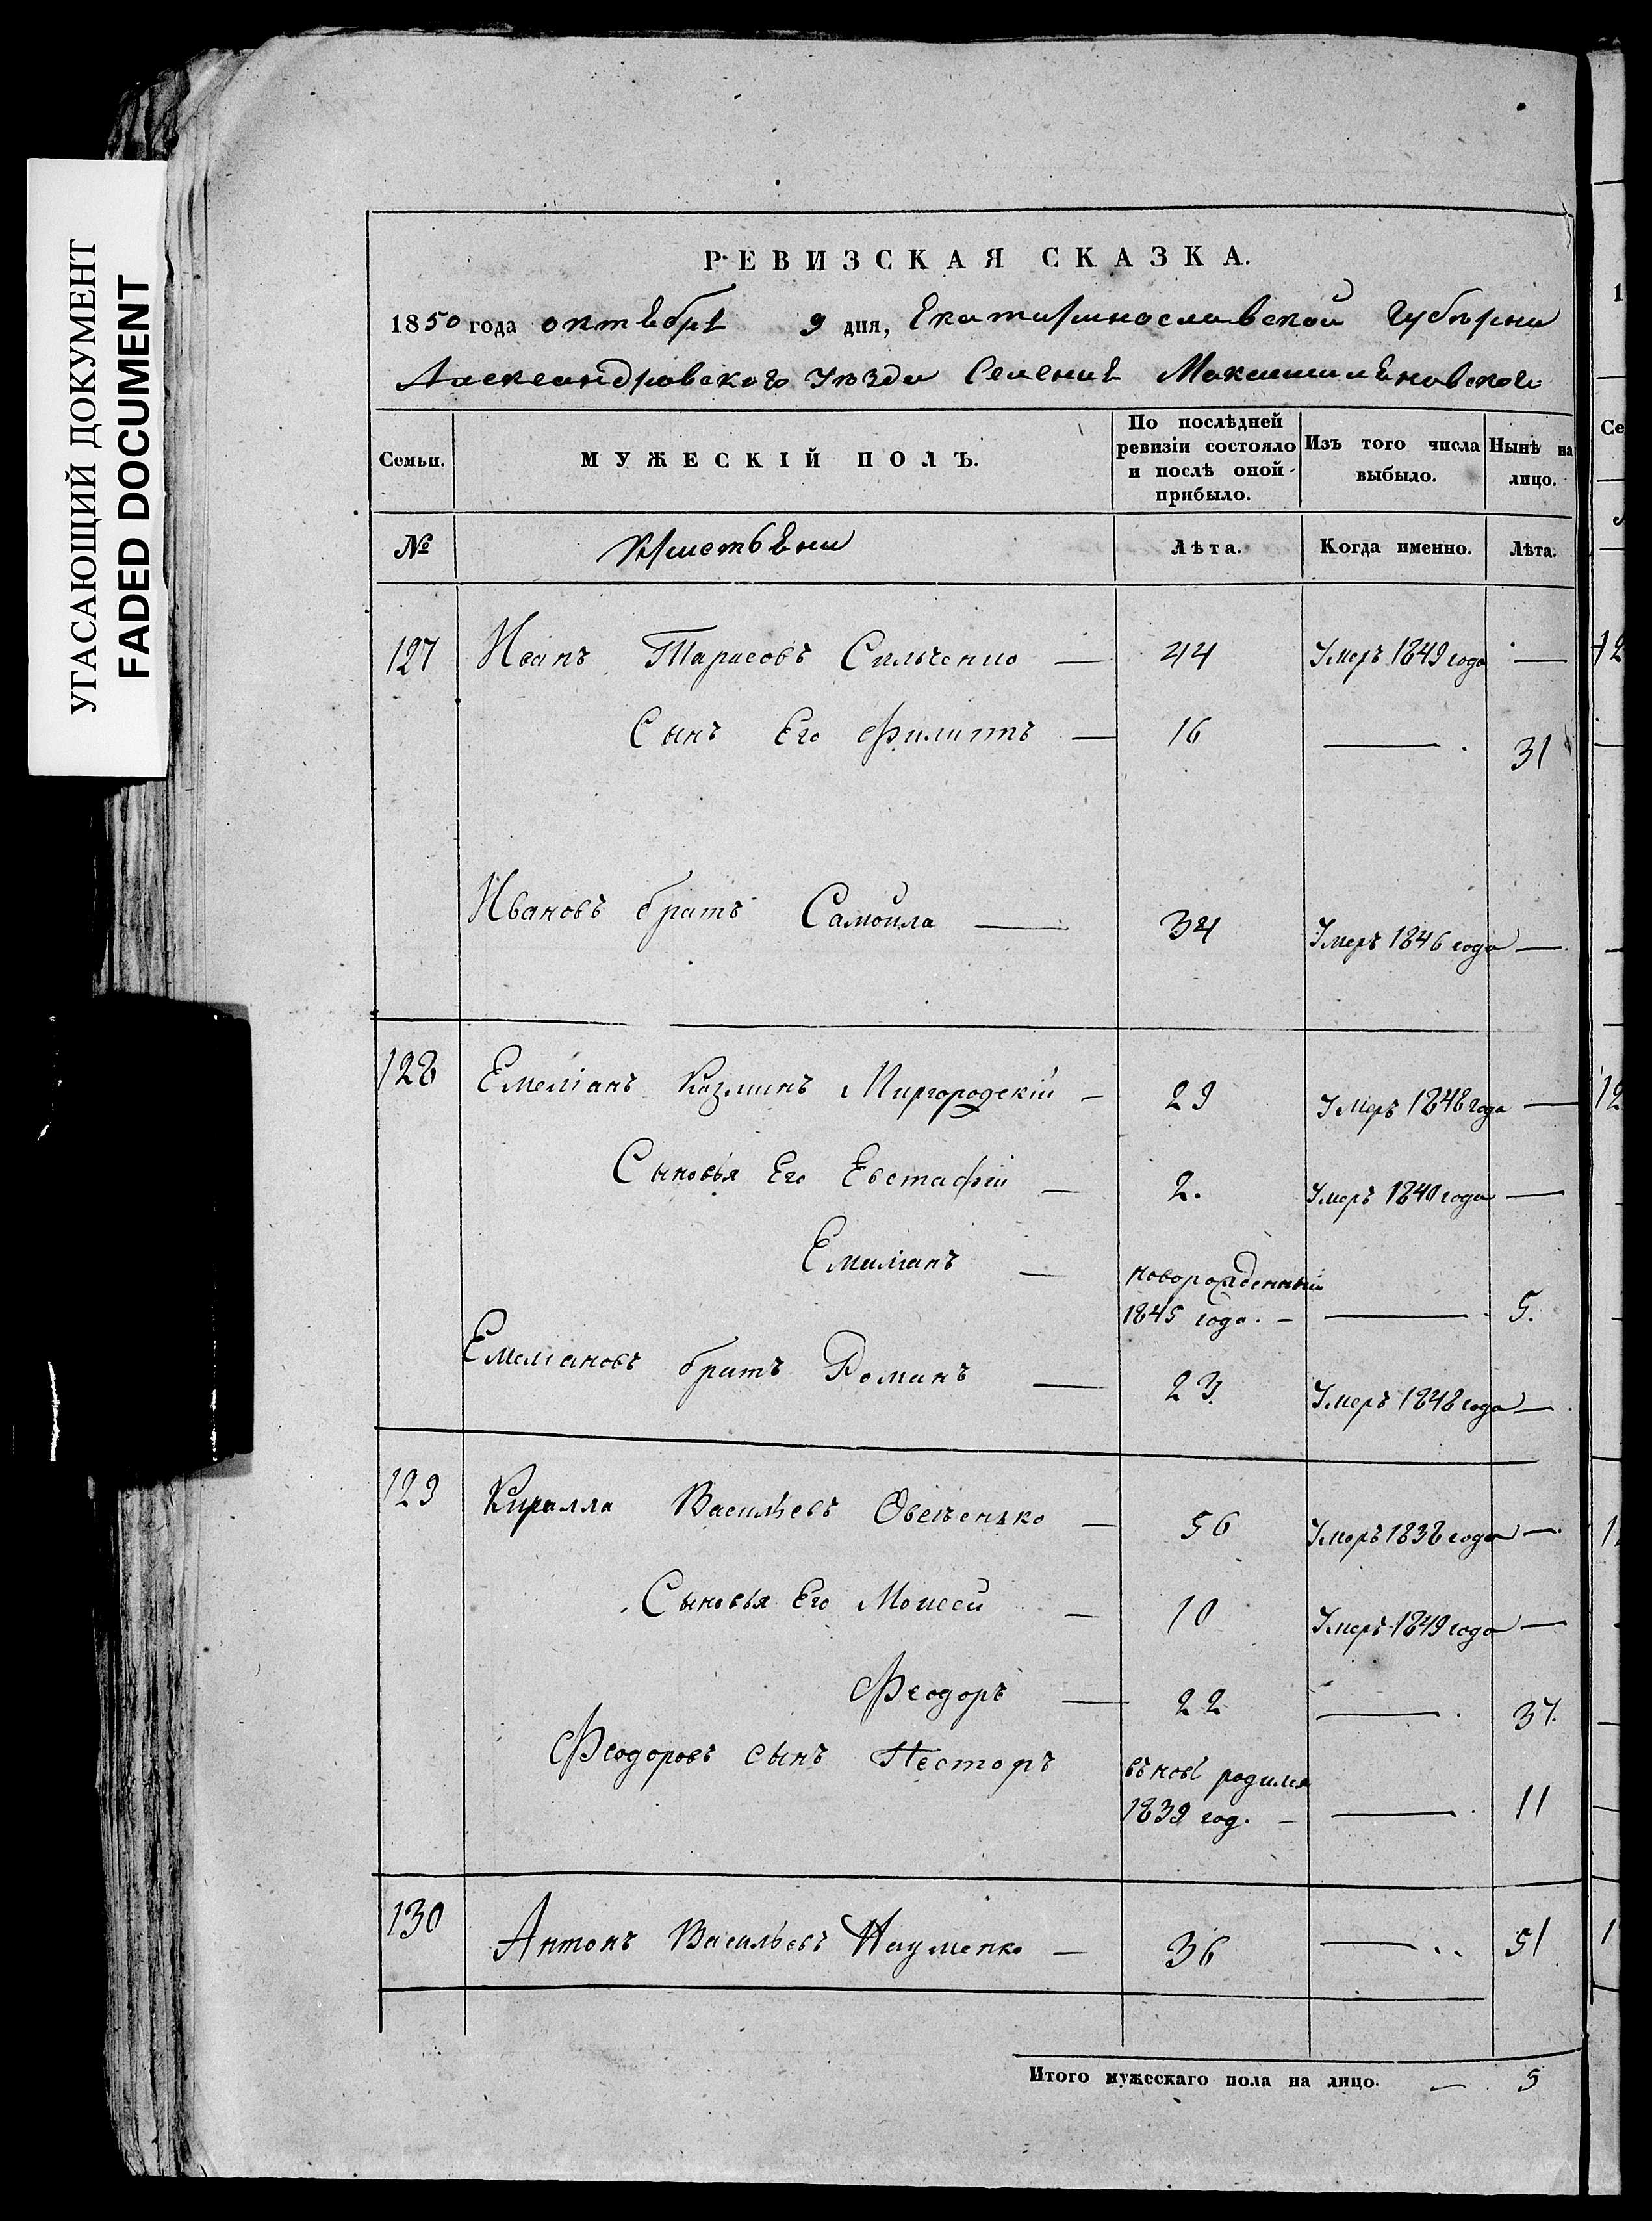 УГАСАЮЩИЙ ДОКУМЕНТ
FADED DOCUMENT
РЕВИЗСКАЯ СКАЗКА.
1850 года октября 9 дня, Екатеринославской Губерни
Александровского Уѣзда Селения Максимиляновского
Семьи. МУЖЕСКІЙ ПОЛЪ. По послѣдней ревизіи состояло и послѣ оной прибыло. Изъ того числа выбыло. Нынѣ на лицо.
№ Християни Лѣта. Когда именно. Лѣта.
127 Иванъ Тарасовъ Сильченко — 44 Умеръ 1849 года —
Сынъ Его Филиппъ — 16 — 31
Ивановъ братъ Самойла — 34 Умеръ 1846 года —
128 Емеліанъ Козминъ Миргородскій — 29 Умеръ 1848 года —
Сыновья Его Евстафій — 2. Умеръ 1840 года —
Емиліанъ — новорожденный 1845 года. — — 5.
Емеліановъ братъ Романъ — 23. Умеръ 1848 года —
129 Кирилла Васильевъ Овсѣенько — 56 Умеръ 1838 года —
Сыновья Его Моисей — 10 Умеръ 1849 года —
Феодоръ — 22 — 37.
Феодоровъ сынъ Несторъ вѣновѣ родился 1839 год. — — 11
130 Антонъ Васильевъ Науменко — 36 — 51
Итого мужескаго пола на лицо. — 5